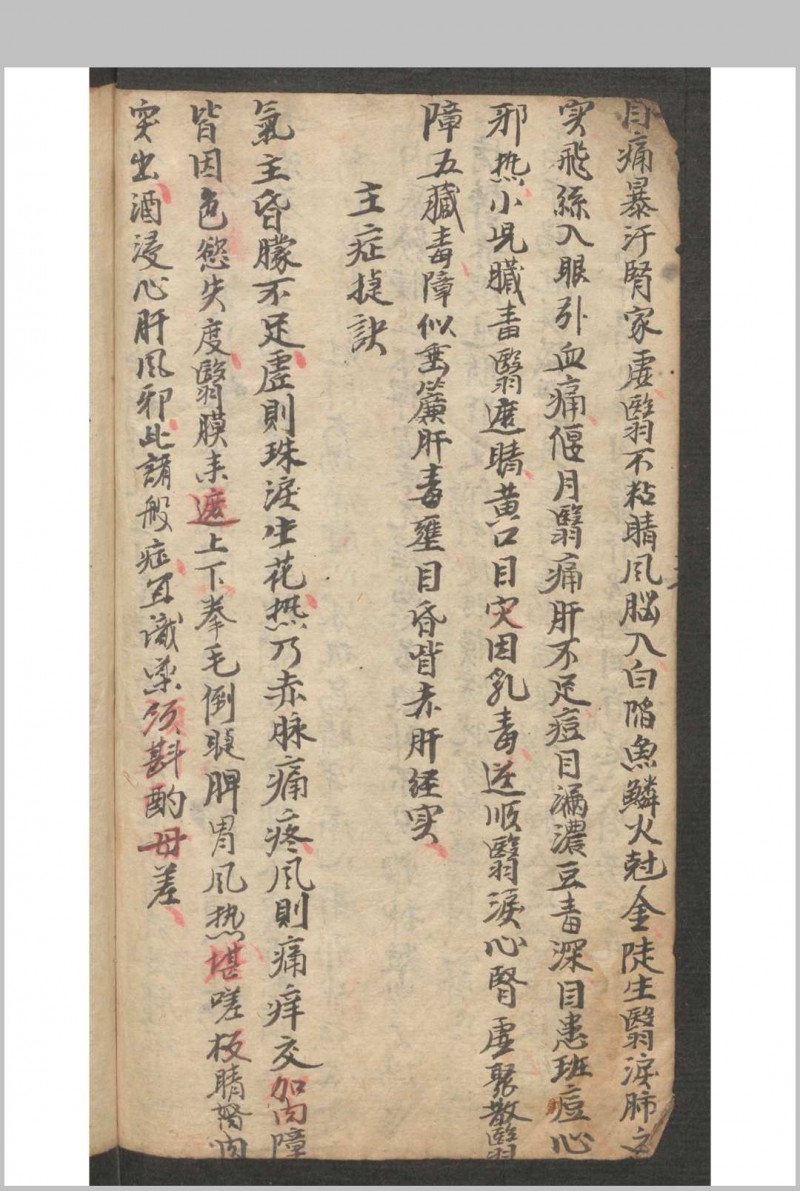 目痛暴汙腎家虛翳不粘睛風腦入白陷魚鱗火尅金陡生翳淚肺之
实飛絲入眼引血痛偃月翳痛肝不足痘目漏濃豆毒深目患班痘心
邪热小児臟毒翳遮睛黄口目灾因乳毒逆顺翳淚心腎虛聚散翳
障五臟毒障似垂簾肝毒壅目昏眥赤肝经实
主症捷訣
氣主昏朦不足虛則珠淚生花热乃赤脉痛疼風則痛痒交加内障
皆因色慾失度翳膜未遮上下拳毛倒睫脾胃風热堪嗟板睛胬肉
突出酒浸心肝風邪此諸般症宜識藥须斟酌毋差